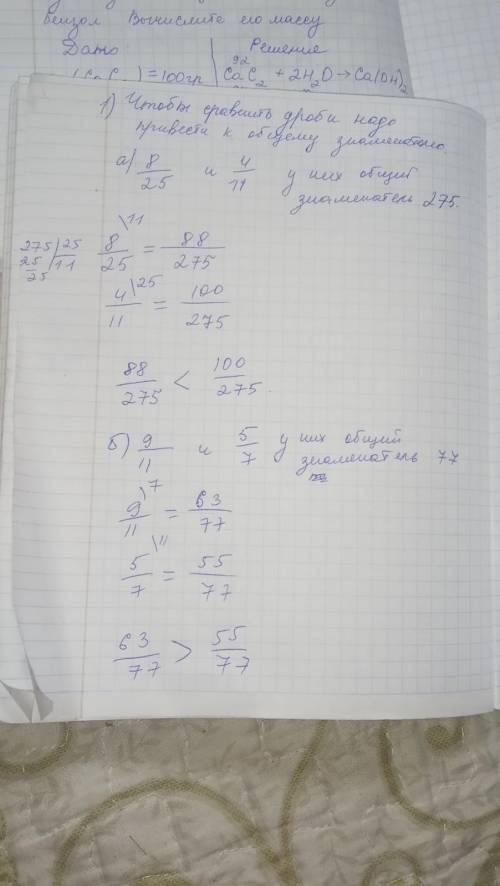 Вычислите его массу
Дано Решение
= 100гр 92
CaC₂ + 2H₂O → Ca(OH)₂
1) Чтобы сравнить дроби надо
привести к общему знаменателю.
а) 8/25 и 4/11 у них общий
знаменатель 275.
275 | 25
25 | 11
25
8/25 \11 = 88/275
4/11 \25 = 100/275
88/275 < 100/275.
б) 9/11 и 5/7 у них общий
знаменатель 77
9/11 \7 = 63/77
5/7 \11 = 55/77
63/77 > 55/77